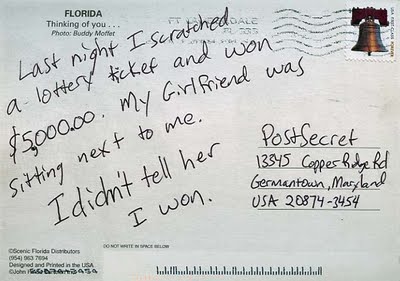 FLORIDA
Thinking of you . . .
Photo: Buddy Moffet
Last night I scratched
a lottery ticket and won
$5,000.00. My Girlfriend was
sitting next to me.
I didn't tell her
I won.
PostSecret
13345 Copper Ridge Rd
Germantown, Maryland
USA 20874-3454
©Scenic Florida Distributors
(954) 963 7694
Designed and Printed in the USA
©John
DO NOT WRITE IN SPACE BELOW